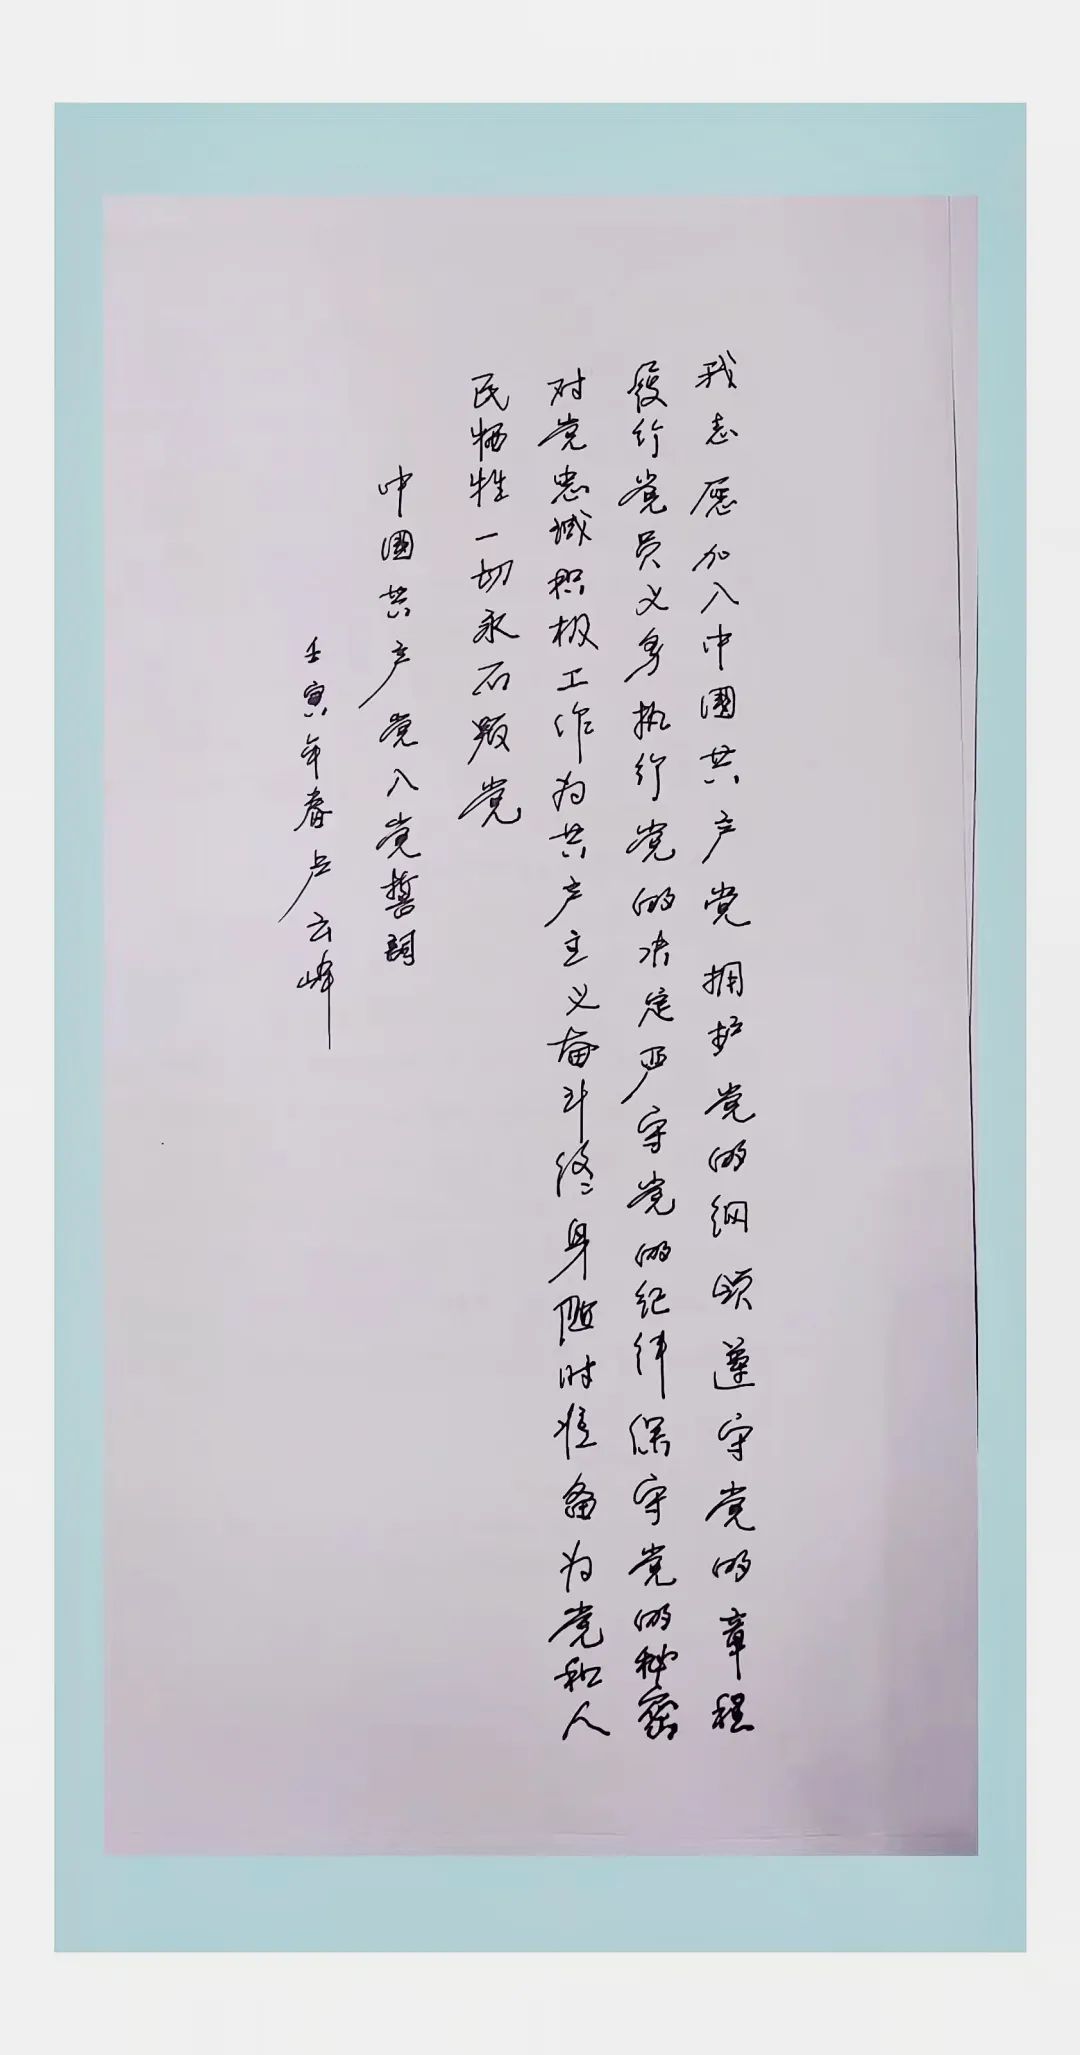 我志愿加入中國共产党拥护党的纲领遵守党的章程
履行党员义务执行党的决定严守党的纪律保守党的秘密
对党忠诚积极工作为共产主义奋斗终身随时准备为党和人
民牺牲一切永不叛党
中國共产党入党誓詞
壬寅年春卢云峰